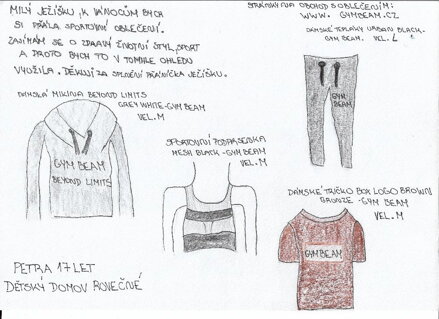 MILÝ JEŽÍŠKU, K VÁNOCŮM BYCH
SI PŘÁLA SPORTOVNÍ OBLEČENÍ.
ZAJÍMÁM SE O ZDRAVÝ ŽIVOTNÍ STYL, SPORT
A PROTO BYCH TO V TOMHLE OHLEDU
VYUŽILA. DĚKUJI ZA SPLNĚNÍ PŘÁNÍČKA JEŽÍŠKU.
STRÁNKY NA OBCHOD S OBLEČENÍM:
WWW. GYMBEAM.CZ
DÁMSKÉ TEPLÁKY URBAN BLACK-
GYM BEAM. VEL. L
GYM
BEAM
DÁMSKÁ MIKINA BEYOND LIMITS
GREY WHITE-GYM BEAM
VEL. M
GYM BEAM
BEYOND LIMITS
SPORTOVNÍ PODPRSENKA
MESH BLACK-GYM BEAM
VEL. M
DÁMSKÉ TRIČKO BOX LOGO BROWN
BRONZE -GYM BEAM
VEL. M
GYM BEAM
PETRA 17 LET
DĚTSKÝ DOMOV ROVEČNÉ